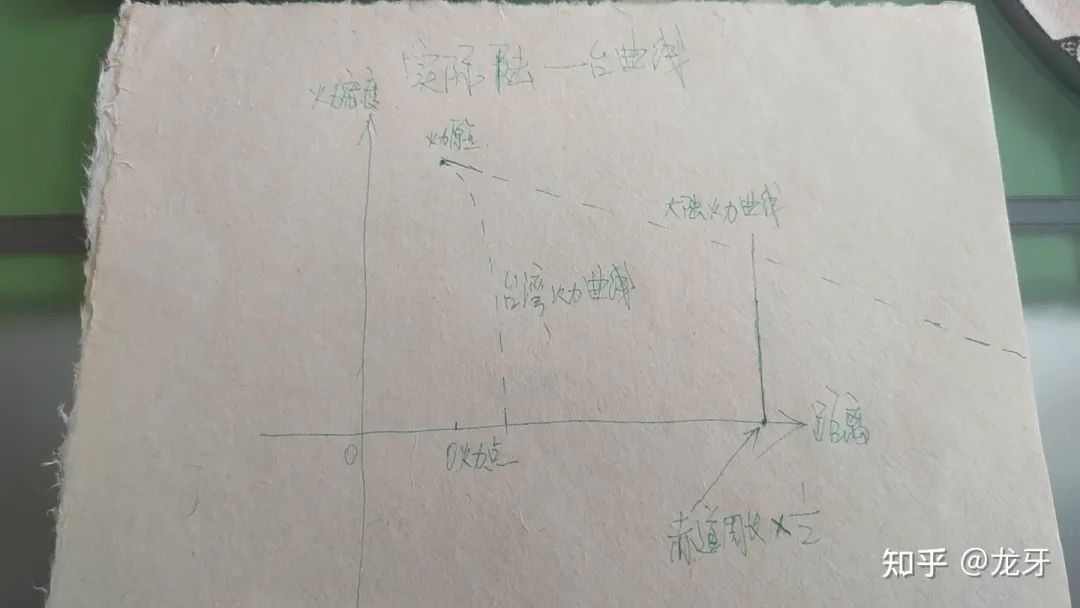 实际陆一台曲线
火力密度
火力原点
大陆火力曲线
台湾火力曲线
0
0火力点
距离
赤道周长×1/2
知乎 @龙牙